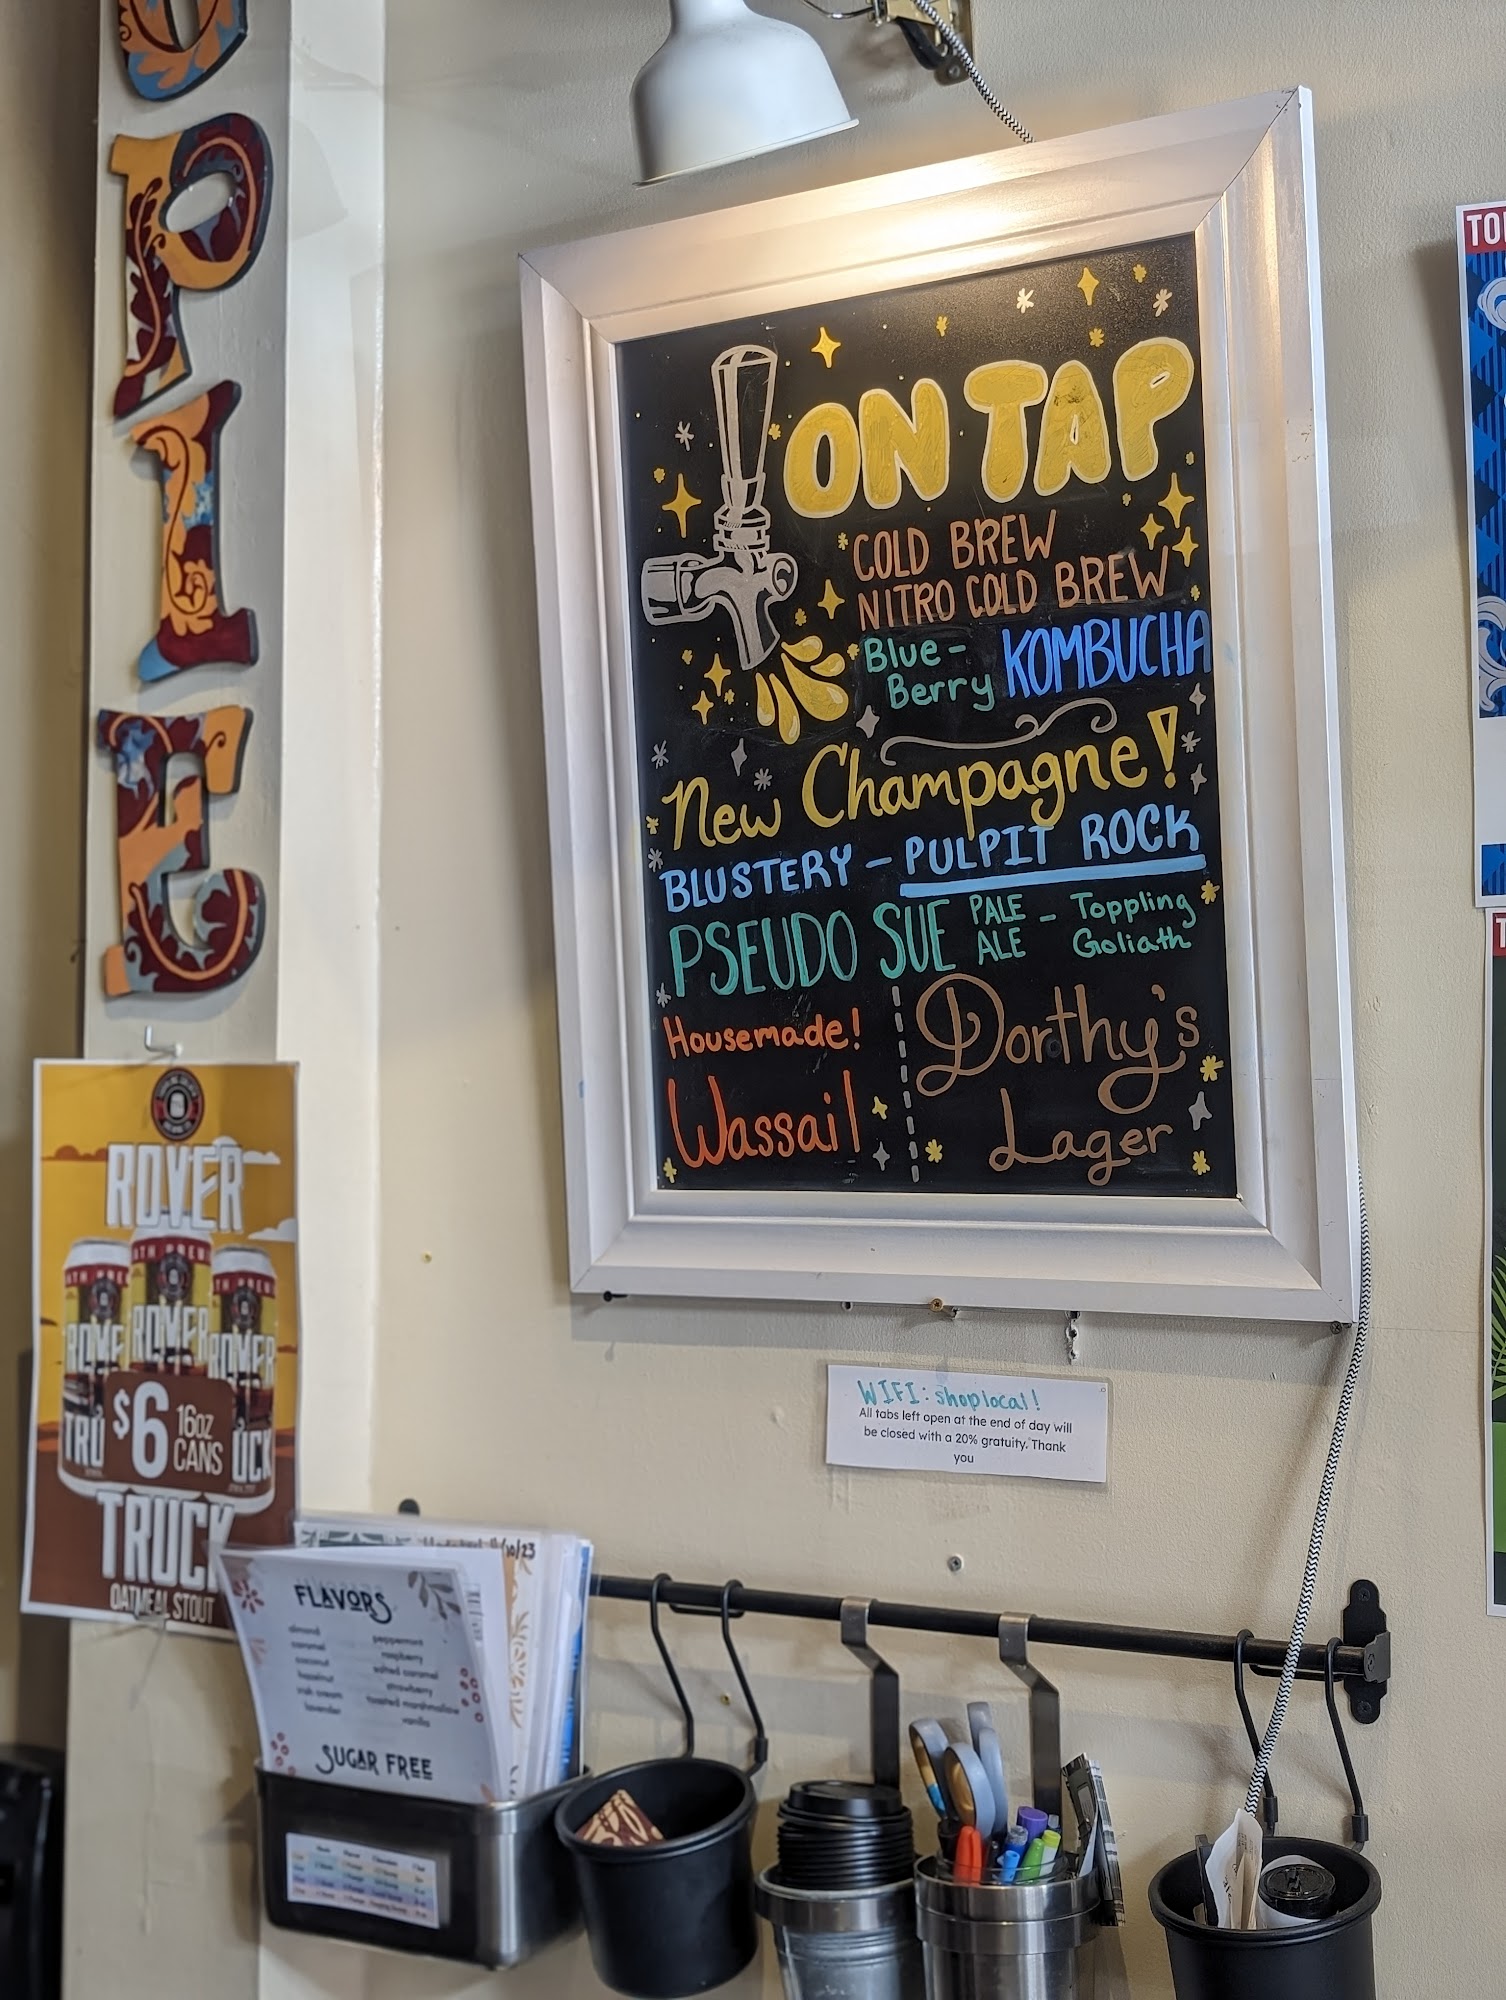 OPIE
ON TAP
COLD BREW
NITRO COLD BREW
Blue-
Berry KOMBUCHA
New Champagne!
BLUSTERY - PULPIT ROCK
PSEUDO SUE PALE ALE - Toppling Goliath
Housemade!
Wassail
Dorthy's
Lager
WIFI: shoplocal!
All tabs left open at the end of day will
be closed with a 20% gratuity. Thank
you
ROVER
ROVER
ROVER
TRU
$6 16oz CANS
UCK
TRUCK
OATMEAL STOUT
10/23
FLAVORS
almond
caramel
coconut
hazelnut
irish cream
lavender
peppermint
raspberry
salted caramel
strawberry
toasted marshmallow
vanilla
SUGAR FREE
TO
T